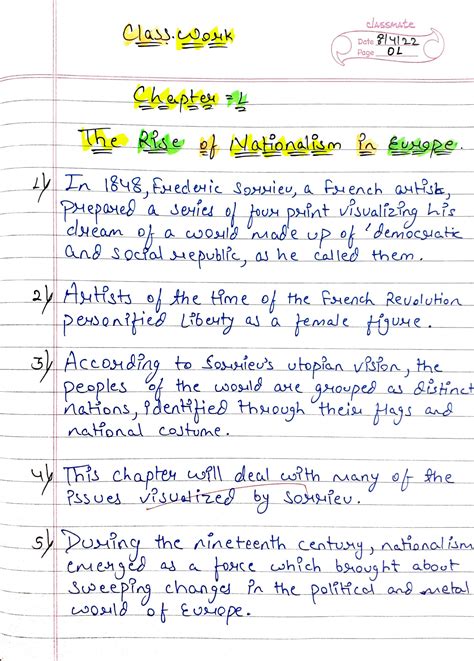 classmate
Date 8/4/22
Page 01
Class.work
Chapter = 1
The Rise of Nationalism in Europe.
1) In 1848, Frederic Sorrieu, a French artist,
prepared a series of four print visualizing his
dream of a world made up of 'democratic
and social republic, as he called them.
2) Artists of the time of the French Revolution
personified Liberty as a female figure.
3) According to Sorrieu's utopian vision, the
peoples of the world are grouped as distinct
nations, identified through their flags and
national costume.
4) This chapter will deal with many of the
issues visualized by Sorrieu.
5) During the nineteenth century, nationalism
emerged as a force which brought about
sweeping changes in the political and metal
world of Europe.